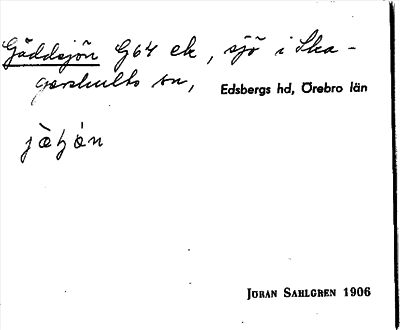 Gäddsjön G64 ek, sjö i Ska-
gershults sn,
Edsbergs hd, Örebro län
JÖRAN SAHLGREN 1906